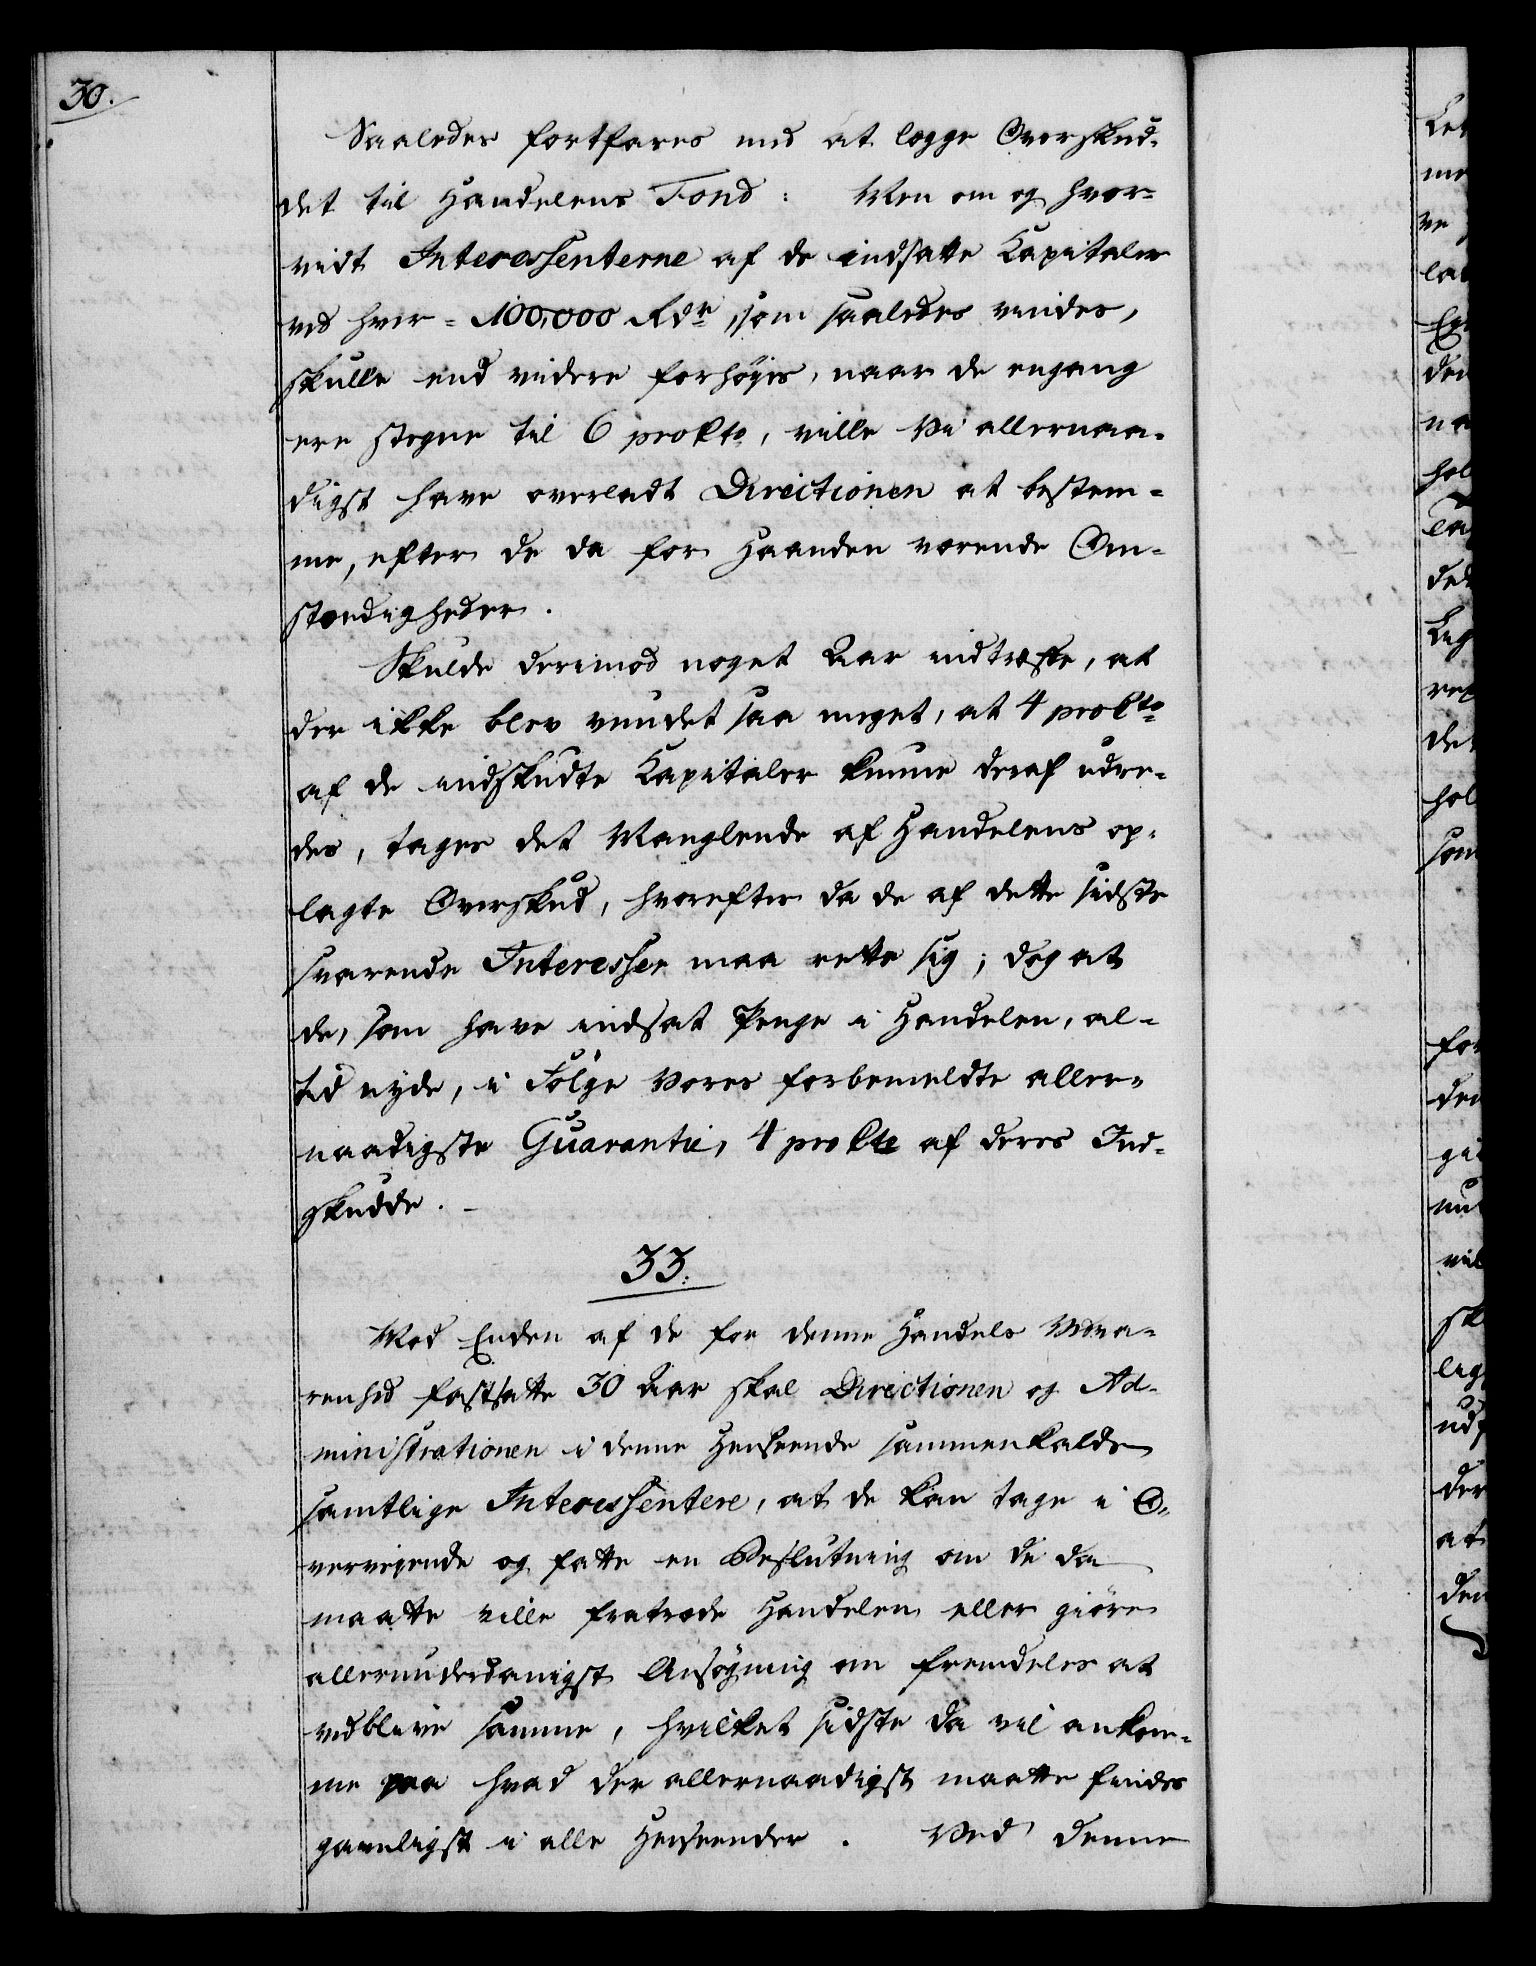 30.
Saaledes fortfares med at legge Overskud-
det til Handelens Fond: Men om og hvor-
vidt Interessenterne af de indsatte Kapitaler
ved hver 100,000 Rdr, som saaledes vindes,
skulle end videre forhøies, naar de engang
ere stegne til 6 prokto, ville Vi allernaa-
digst have overladt Directionen at bestem-
me, efter de da for Haanden værende Om-
stændigheder.
Skulde derimod noget Aar indtræffe, at
der ikke blev vundet saa meget, at 4 prokto
af de indskudte Kapitaler kunne deraf udre-
des, tages det Manglende af Handelens op-
lagte Overskud, hvorefter da de af dette sidste
svarende Interesser maa rette sig; dog at
de, som have indsat Penge i Handelen, al-
tid nyde, i Følge Vores forbemeldte aller-
naadigste Guarantie, 4 prokto af deres Ind-
skudde.
33.
Mod Enden af de for denne Handels Vedva-
renhed fastsatte 30 Aar skal Directionen og Ad-
ministrationen i denne Henseende sammenkalde
samtlige Interessentere, at de kan tage i O-
verveiende og fatte en Beslutning om de da
maatte ville fratræde Handelen eller giøre
allerunderdanigst Ansøgning om fremdeles at
vedblive samme, hvilket sidste da vil ankom-
me paa hvad der allernaadigst maatte findes
gavnligst i alle Henseender. Ved denne